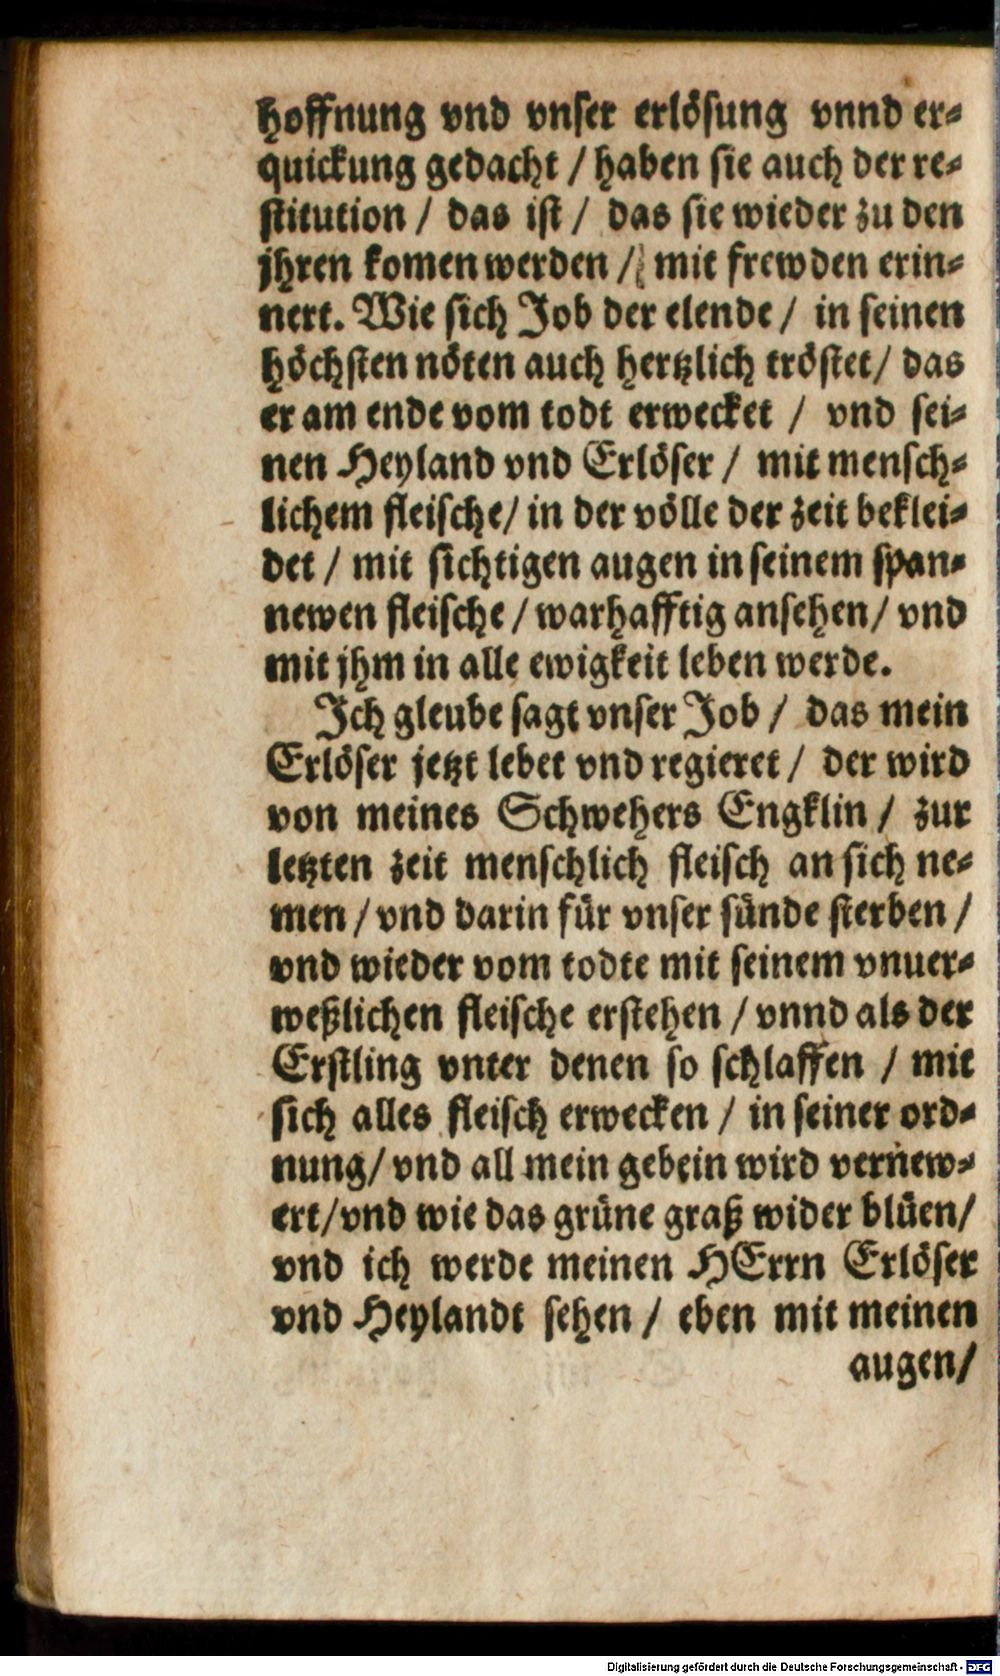 hoffnung vnd vnser erlösung vnnd er⸗
quickung gedacht / haben sie auch der re⸗
stitution / das ist / das sie wieder zu den
jhren komen werden / mit frewden erin⸗
nert. Wie sich Job der elende / in seinen
höchsten nöten auch hertzlich tröstet / das
er am ende vom todt erwecket / vnd sei⸗
nen Heyland vnd Erlöser / mit mensch⸗
lichem fleische / in der völle der zeit beklei⸗
det / mit sichtigen augen in seinem span⸗
newen fleische / warhafftig ansehen / vnd
mit jhm in alle ewigkeit leben werde.
Ich gleube sagt vnser Job / das mein
Erlöser jetzt lebet vnd regieret / der wird
von meines Schwehers Engklin / zur
letzten zeit menschlich fleisch an sich ne⸗
men / vnd darin für vnser sünde sterben /
vnd wieder vom todte mit seinem vnuer⸗
weßlichen fleische erstehen / vnnd als der
Erstling vnter denen so schlaffen / mit
sich alles fleisch erwecken / in seiner ord⸗
nung / vnd all mein gebein wird vernew⸗
ert / vnd wie das grüne graß wider blüen /
vnd ich werde meinen HErrn Erlöser
vnd Heylandt sehen / eben mit meinen
augen /
Digitalisierung gefördert durch die Deutsche Forschungsgemeinschaft - DFG